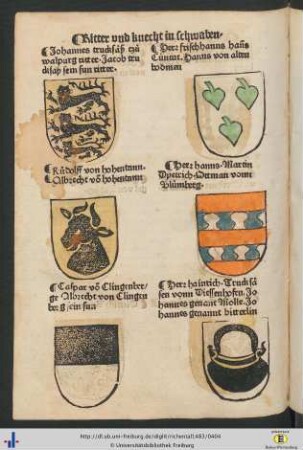 Ritter vnd knecht in schwaben.
Johannes trucksäß tzů
walpurg ritter. Jacob tru
cksäß sein sun ritter.
Herr frischhanns hanß
Cůnrat. Hanns von alten
bodman
Růdolff von hohentann.
Albrecht võ hohentann
Herr hanns. Martin
Dyetrich. Oteman vonn
Blůmberg.
Caspar võ Clingenber
ge Albrecht von Clingen
berg sein sun
Herr hainrich. Truckſä
ſen vonn Dieſſenhofen. Jo
hannes genant Molle. Jo
hannes genannt bitterlin
http://dl.ub.uni-freiburg.de/diglit/richental1483/0404
© Universitätsbibliothek Freiburg